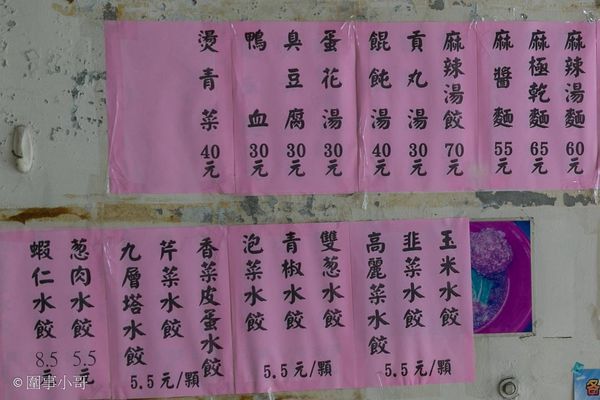 麻辣湯麵 60元
麻極乾麵 65元
麻醬麵 55元
麻辣湯餃 70元
貢丸湯 30元
餛飩湯 40元
蛋花湯 30元
臭豆腐 30元
鴨血 30元
燙青菜 40元
玉米水餃
韭菜水餃
高麗菜水餃
5.5元/顆
雙葱水餃
青椒水餃
泡菜水餃
5.5元/顆
香菜皮蛋水餃
芹菜水餃
九層塔水餃
5.5元/顆
葱肉水餃 5.5元
蝦仁水餃 8.5元
各
© 圍事小哥